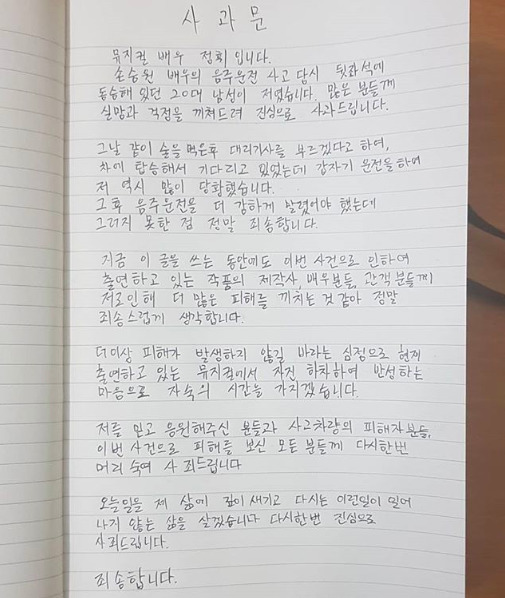 사 과 문
뮤지컬 배우 정휘 입니다.
손승원 배우의 음주운전 사고 당시 뒷좌석에
동승해 있던 20대 남성이 저였습니다. 많은 분들께
실망과 걱정을 끼쳐드려 진심으로 사과드립니다.
그날 같이 술을 먹은후 대리기사를 부르겠다고 하여,
차에 탑승해서 기다리고 있었는데 갑자기 운전을 하여
저 역시 많이 당황했습니다.
그후 음주운전을 더 강하게 말렸어야 했는데
그러지 못한 점 정말 죄송합니다.
지금 이 글을 쓰는 동안에도 이번 사건으로 인하여
출연하고 있는 작품의 제작사, 배우분들, 관객 분들께
저로인해 더 많은 피해를 끼치는 것 같아 정말
죄송스럽게 생각합니다.
더이상 피해가 발생하지 않길 바라는 심정으로 현재
출연하고 있는 뮤지컬에서 자진 하차하여 반성하는
마음으로 자숙의 시간을 가지겠습니다.
저를 믿고 응원해주신 분들과 사고차량의 피해자분들,
이번 사건으로 피해를 보신 모든 분들께 다시한번
머리 숙여 사죄드립니다
오늘일을 제 삶에 깊이 새기고 다시는 이런일이 일어
나지 않는 삶을 살겠습니다 다시한번 진심으로
사죄드립니다.
죄송합니다.